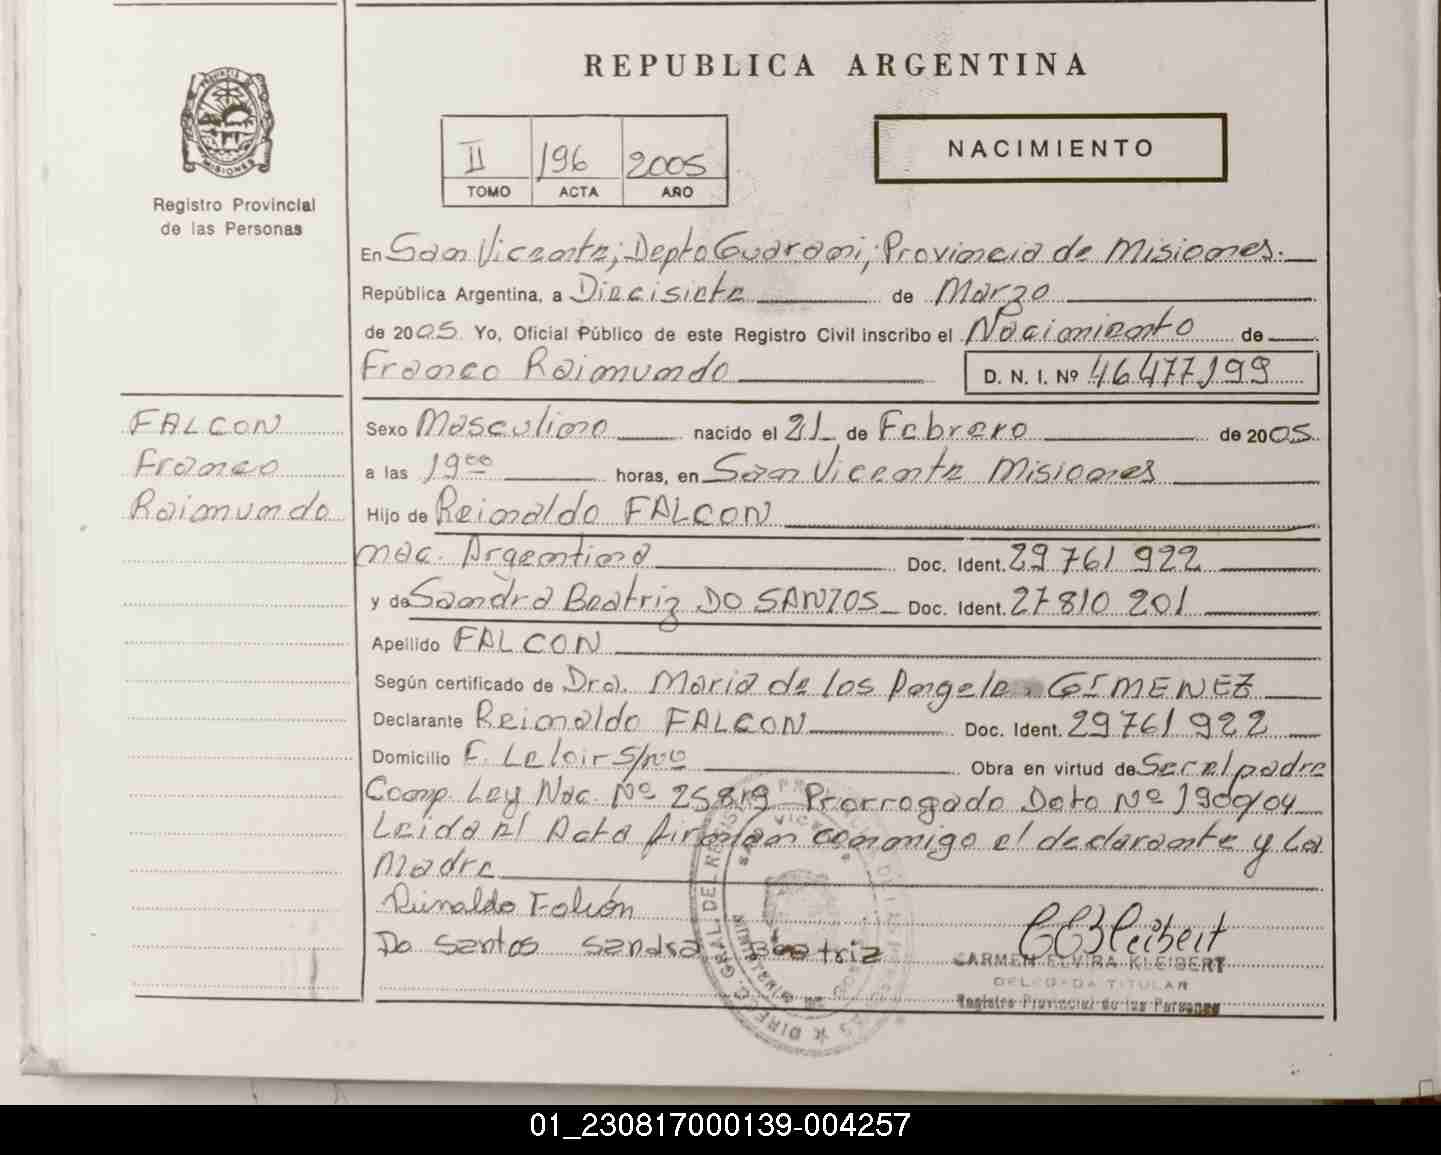 REPUBLICA ARGENTINA
PROVINCIA DE
MISIONES
Registro Provincial
de las Personas
II 196 2005
TOMO ACTA AÑO
NACIMIENTO
En San Vicente; Depto Guarani; Provincia de Misiones.
República Argentina, a Diecisiete de Marzo
de 2005. Yo, Oficial Público de este Registro Civil inscribo el Nacimiento de
Franco Raimundo D. N. I. Nº 46477199
FALCON
Franco
Raimundo
Sexo Masculino nacido el 21 de Febrero de 2005
a las 19⁰⁰ horas, en San Vicente Misiones
Hijo de Reinaldo FALCON
nac. Argentina Doc. Ident. 29 761 922
y de Sandra Beatriz DO SANTOS Doc. Ident. 27 810 201
Apellido FALCON
Según certificado de Dra. Maria de los Angele GIMENEZ
Declarante Reinaldo FALCON Doc. Ident. 29761 922
Domicilio F. Leloir S/Nº Obra en virtud de Ser el padre
Comp. Ley Nac. Nº 25819 Prorrogado Dcto Nº 1909/04
Leida el Acta firman conmigo el declarante y La
Madre
Reinaldo Falcón
Do Santos Sandra Beatriz
CEKleibert
CARMEN ELVIRA KLEIBERT
DELEGADA TITULAR
Registro Provincial de las Personas
01_230817000139-004257